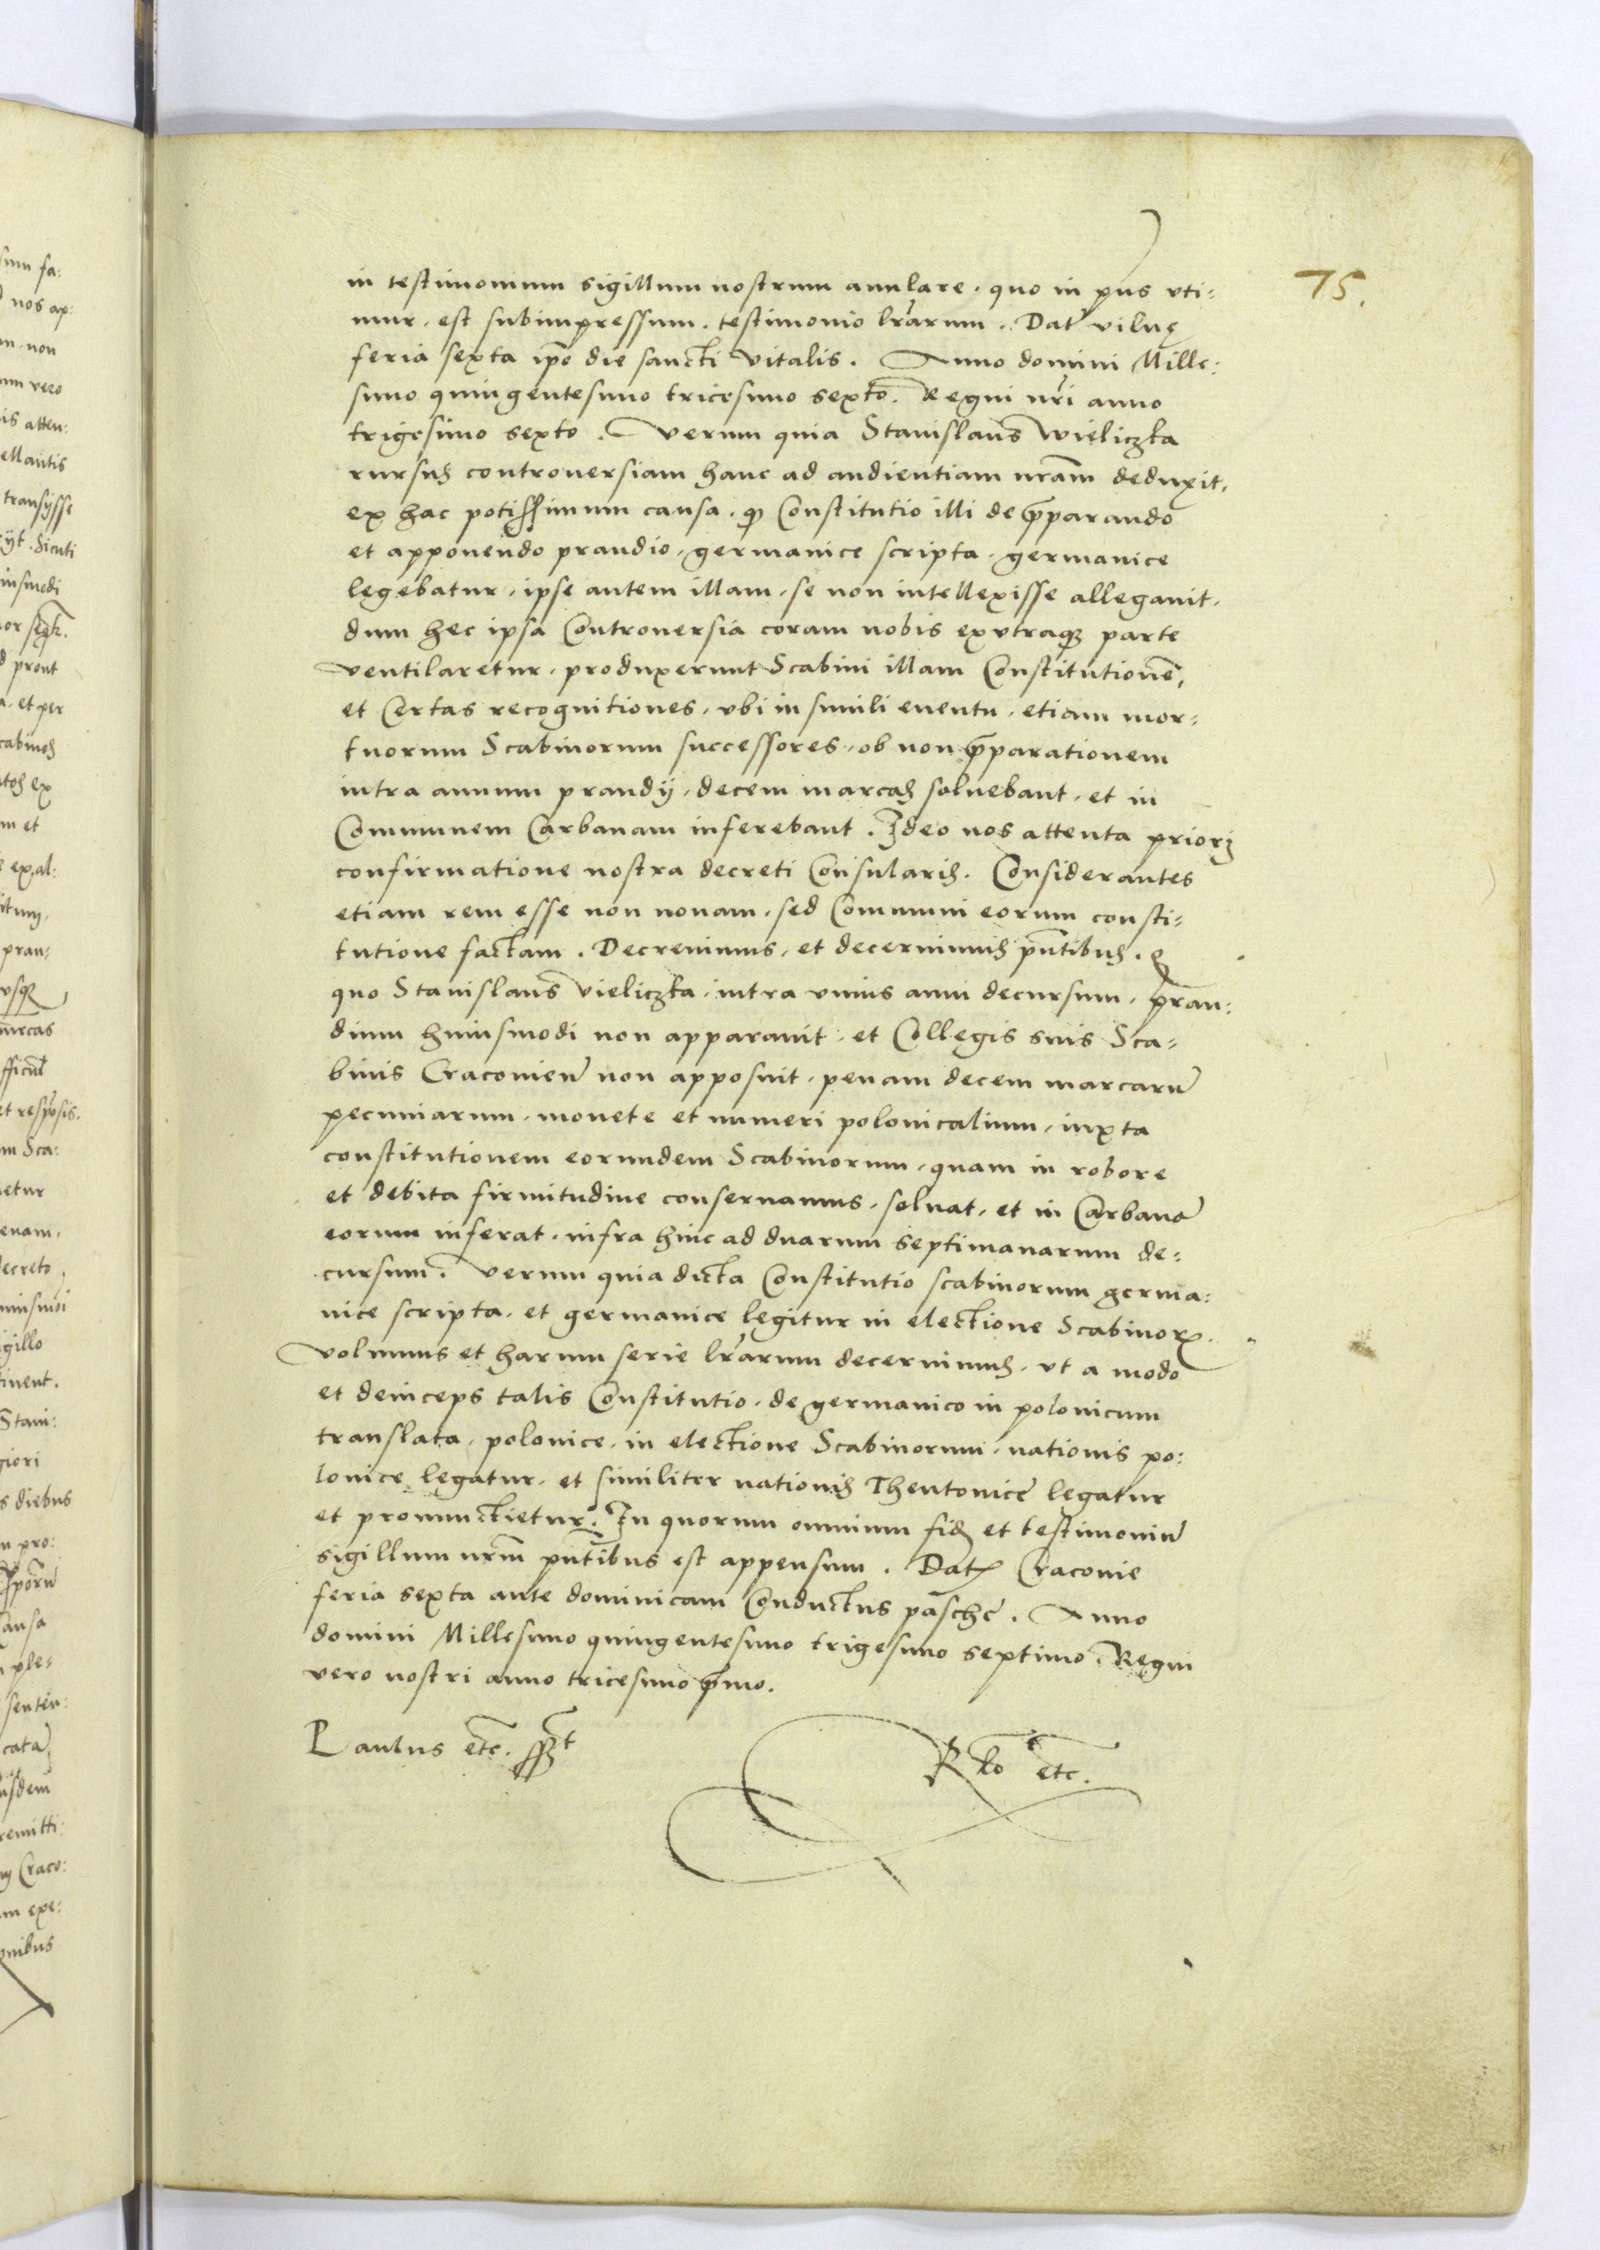 75.
in testimonium sigillum nostrum annulare, quo in pñs vti=
mur, est subimpressum, testimonio lrarum. Dat vilnę
feria sexta ipo die sancti Vitalis. Anno domini Mille:
simo quingentesimo tricesimo sexto. Regni nri anno
trigesimo sexto. Verum quia Stanislaus Wieliczka
rursus controuersiam hanc ad audientiam nram deduxit,
ex hac potissimum causa, q Constitutio illi de pparando
et apponendo prandio, germanice scripta, germanice
legebatur, ipse autem illam, se non intellexisse allegauit,
dum hec ipsa Controuersia coram nobis ex vtraq parte
ventilaretur, produxerunt Scabini illam Constitutione,
et Certas recognitiones, vbi in simili euentu, etiam mor=
tuorum Scabinorum successores, ob non pparationem
intra annum prandij, decem marcas soluebant, et in
Communem Carbanam inferebant. Ideo nos attenta priori
confirmatione nostra decreti Consularis. Considerantes
etiam rem esse non nouam, sed Communi eorum consti=
tutione factam. Decreuimus, et decernimus pntibus.
quo Stanislaus Vieliczka, intra vnius anni decursum, pran:
dium huiusmodi non apparauit, et Collegis suis Sca=
binis Cracouien non apposuit, penam decem marcaru
pecuniarum, monete et numeri polonicalium, iuxta
constitutionem eorundem Scabinorum, quam in robore
et debita firmitudine conseruamus, soluat, et in Carbana
eorum inferat, infra hinc ad duarum septimanarum de=
cursum. Verum quia dicta Constitutio scabinorum germa:
nice scripta, et germanice legitur in electione Scabinor.
Volumus et harum serie lrarum decernimus, vt a modo
et deinceps talis Constitutio, de germanico in polonicum
translata, polonice, in electione Scabinorum, nationis po:
lonice legatur, et similiter nationis Theutonice legatur
et pronunctietur. In quorum omnium fid et testimoniu
sigillum nrm pntibus est appensum. Dat Cracouie
feria sexta ante dominicam Conductus pasche. Anno
domini Millesimo quingentesimo trigesimo septimo. Regni
vero nostri anno tricesimo pmo.
Paulus etc.
etc.